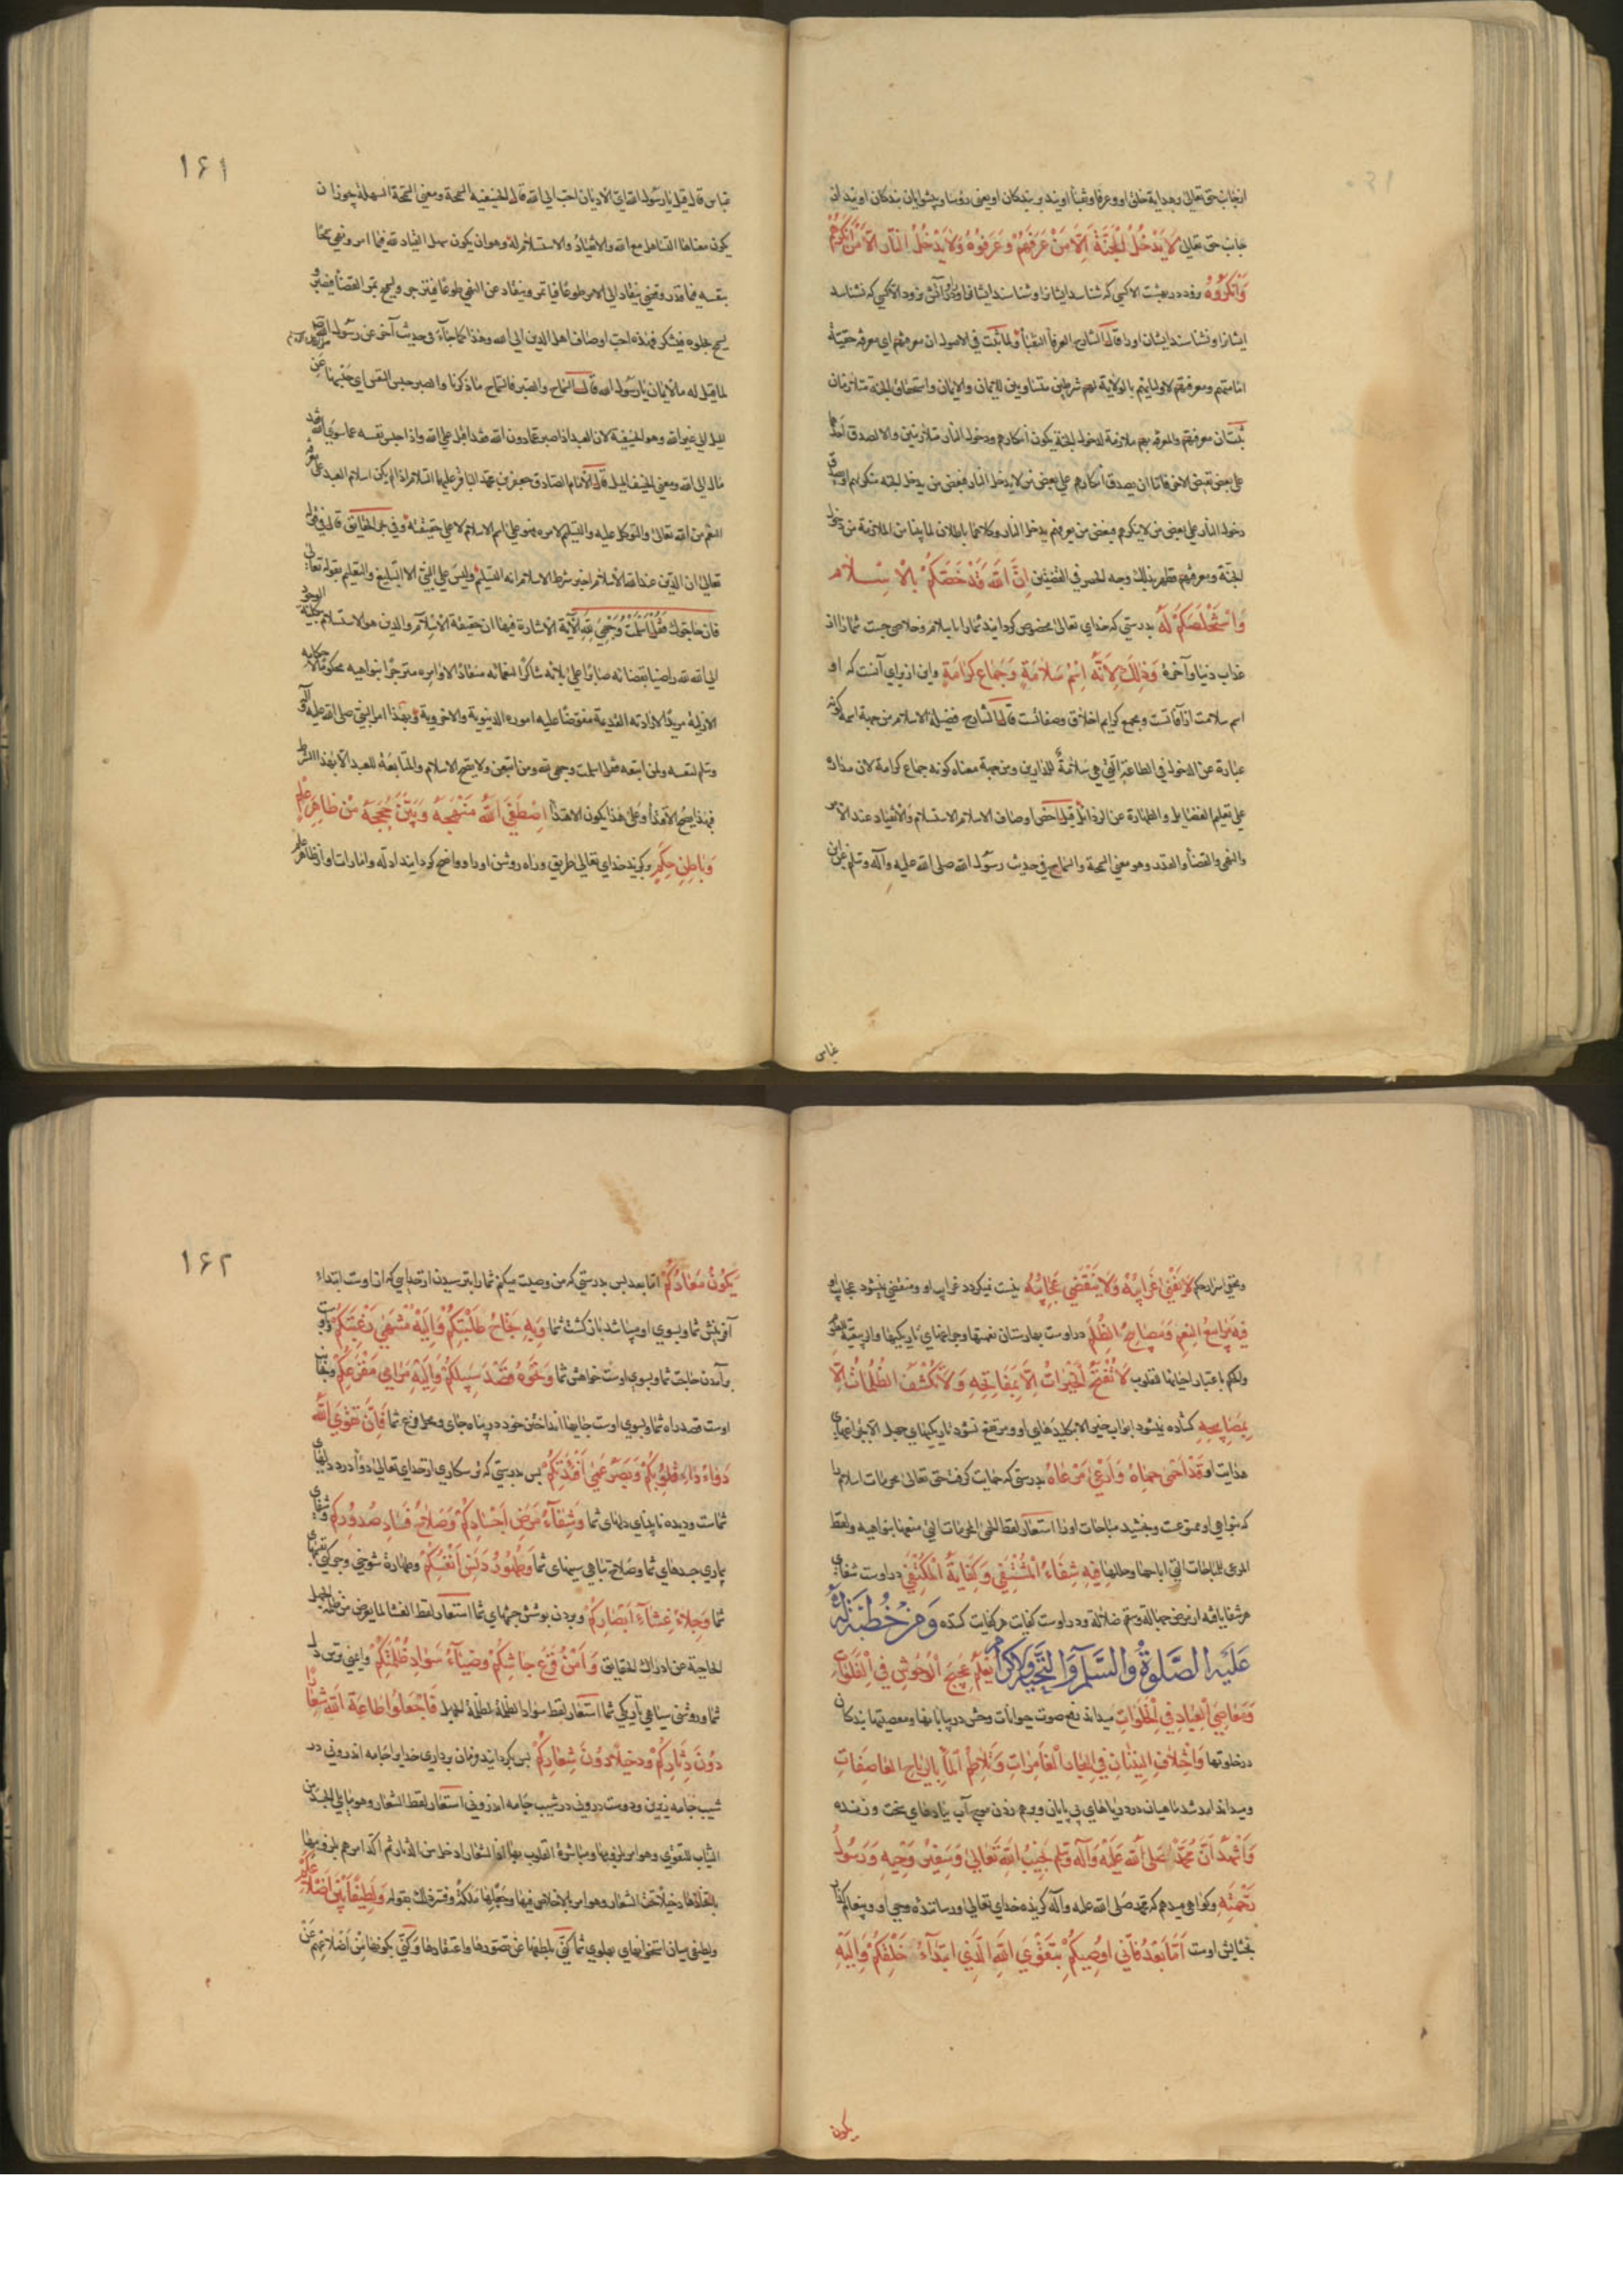 از جانب حق تعالی بهدایة خلق او و عرفا و نقبأ اویند بر بندکان او یعنی رؤسا و پیشوایان بندکان اویند از
جانب حق تعالی لَا يَدْخُلُ الْجَنَّةَ اِلَّا مَنْ عَرَفَهُمْ وَ عَرَفُوْهُ وَلَا يَدْخُلُ النَّارَ اِلَّا مَنْ اَنْكَرَهُمْ
وَاَنْكَرُوْهُ نرود در بهشت الا کسی که شناسد ایشانرا و شناسند ایشان او را و در آتش نرود الا کسی که نشناسد
ایشانرا و نشناسند ایشان او را قال الشارح العرفأ النقبأ و لما ثبت فی الاصول ان معرفتهم ای معرفة حقیّة
امامتهم و معرفتهم لاولیائهم بالولایة لهم شرطین متساویین للایمان والایمان واستحقاق الجنة متلازمان
ثبت ان معرفتهم والمعرفة بهم ملازمة لدخول الجنة یکون انکارهم ودخول النار متلازمین والا لصدق احدهما
علی بعض نقیض الاخر فاما ان یصدق انکارهم علی بعض من لا یدخل النار فبعض من یدخل الجنة منکر لهم او یصدق
دخول النار علی بعض من لا ینکرهم فبعض من یعرفهم یدخل النار وکلاهما باطلان لما بینا من الملازمة من دخول
الجنة و معرفتهم فظهر بذلک وجه الحصر فی القضیتین اِنَّ اللّٰهَ قَدْ خَصَّكُمْ بِالْاِسْلَام
وَاسْتَخْلَصَكُمْ لَهُ بدرستی که خدای تعالی مخصوص کردانید شما را باسلام و خلاصی جست شما را از
عذاب دنیا و آخرة وَذٰلِكَ لِاَنَّهُ اِسْمُ سَلَامَةٍ وَجِمَاعُ كَرَامَةٍ و این از برای آنست که او
اسم سلامت از آفاتست و مجمع کرایم اخلاق و صفاتست قال الشارح فضیلة الاسلام من جهة اسمه کونه
عبارة عن الدخول فی الطاعة التی هی سلامةٌ للدارین و من جهة معناه کونه جماع کرامة لان مداره
علی تعلیم الفضایل والطهارة عن الرذائل قیل اخص اوصاف الاسلام الاستسلام والانقیاد عند الأمر
والنهی والقضأ والقدر وهو معنی السمحة والسماح فی حدیث رسول الله صلی الله علیه وآله وسلم عن ابن
عباس
۱۶۱
عباس قال قیل یا رسول الله ای الادیان احب الی الله قال الحنیفیة السمحة ومعنی السمحة السهلة یجوز ان
یکون معناها التساهل مع الله والانقیاد والاستسلام له وهو ان یکون سهل القیاد لله فیما امر ونهی سمحًا
بنفسه فیما قدر وقضی ینقاد الی الامر طوعًا فیأتمر وینقاد عن النهی طوعًا فینزجر ویسمح بمرّ القضأ فیصبر و
یسمح بحلوه فیشکر فهذه احبّ اوصاف اهل الدین الی الله وهذا کما جآء فی حدیث آخر عن رسول الله
لما قیل له ما الایمان یا رسول الله قال السماح والصبر فالسماح ما ذکرنا والصبر حبس النفس ای حَبْسها عن
المیل الی غیر الله وهو الحنیفیة لان العبد اذا صبر عما دون الله فقد اقبل علی الله واذا حبس نفسه عما سوی الله فقد
مال الی الله ومعنی الحنیف المیل قال الامام الصادق جعفر بن محمد الباقر علیهما السلام اذا لم یکن اسلام العبد علی
الفهم من الله تعالی والتوکل علیه والتسلیم لامره فهو علی اسم الاسلام لا علی حقیقته وفی بحر الحقایق قال فی قوله
تعالی ان الدین عند الله الاسلام اخبر شرط الاسلام انه التسلیم ولیس علی النبی الا التبلیغ والتعلیم بقوله تعالی
فان حاجوک فَقُلْ اَسْلَمْتُ وَجْهِيَ لِلّٰهِ الآیة الاشارة فیها ان حقیقة الاسلام والدین هو الاستسلام
الی الله راضیا بقضائه صابرًا علی بلائه شاکرًا لنعمائه منقادًا لاوامره منزجرًا بنواهیه محکومًا لاحکامه
الازلیة مریدًا لارادته القدیمة مفوّضًا علیه اموره الدنیویة والاخرویة وبهذا امر النبی صلی الله علیه وآله
وسلم لنفسه ولمن اتبعه فقل اسلمت وجهی لله ومن اتبعن ولا یصح الاسلام والمتابعة للعبد الا بهذا الشرط
فبهذا یصح الاقتدأ وعلی هذا یکون الاهتدأ اِصْطَفَى اللّٰهُ مَنْهَجَهُ وَبَيَّنَ حُجَجَهُ مِنْ ظَاهِرِ عِلْمٍ
وَبَاطِنِ حِكَمٍ برکزید خدای تعالی طریق و راه روشن او را و واضح کردانید ادله و امارات او را از ظاهر علم
و مخفی اسرار حکم لَا تَفْنَى غَرَائِبُهُ وَلَا يَنْقَضِي عَجَائِبُهُ نیست نمیکردد غرایب او و منقضی نمیشود عجایب او
فِيهِ مَرَابِيعُ النِّعَمِ وَمَصَابِيحُ الظُّلَمِ در اوست بهارستان نعمتها و چراغهای تاریکیها
ولکم باعتبار احیائها القلوب لَا تُفْتَحُ الْخَيْرَاتُ اِلَّا بِمَفَاتِحِهِ وَلَا تُكْشَفُ الظُّلُمَاتُ اِلَّا
بِمَصَابِيحِهِ کشاده نمیشود ابواب خیر الا بکلیدهای او و مرتفع نشود تاریکیهای جهل الا بچراغهای
هدایت او قَدْ اَحْمَى حِمَاهُ وَاَرْعَى مَرْعَاهُ بدرستی که حمایت کرد حق تعالی محرمات اسلام را
که بنواهی او ممنوعست و بخشید مباحات او را استعار لفظ الحمی للحرمات التی منعها بنواهیه ولفظ
المرعی للمباحات التی اباحها وحللها فِيهِ شِفَاءُ الْمُشْتَفِي وَكِفَايَةُ الْمُكْتَفِي در اوست شفای
هر شفا یابنده از مرض جهالة و سقم ضلالة و در اوست کفایت هر کفایت کننده وَمِنْ خُطْبَةٍ لَهُ
عَلَيْهِ الصَّلٰوةُ وَالسَّلَامُ وَالتَّحِيَّةُ وَالْاِكْرَامُ يَعْلَمُ عَجِيجَ الْوُحُوشِ فِي الْفَلَوَاتِ
وَمَعَاصِيَ الْعِبَادِ فِي الْخَلَوَاتِ میداند رفع صوت حیوانات وحش در بیابانها و معصیتهای بندکان
در خلوتها وَاخْتِلَافَ النِّينَانِ فِي الْبِحَارِ الْغَامِرَاتِ وَتَلَاطُمَ الْمَآءِ بِالرِّيَاحِ الْعَاصِفَاتِ
و میداند آمد شد ماهیان در دریاهای بی پایان و برهم زدن موج آب ببادهای سخت وزنده
وَاَشْهَدُ اَنَّ مُحَمَّدًا صَلَّى اللّٰهُ عَلَيْهِ وَآلِهِ وَسَلَّمَ نَجِيبُ اللّٰهِ تَعَالٰى وَسَفِيرُ وَحْيِهِ وَرَسُولُ
رَحْمَتِهِ و کواهی میدهم که محمد صلی الله علیه وآله کزیده خدای تعالی و رساننده وحی او و پیغام
بخشایش اوست اَمَّا بَعْدُ فَاِنِّي اُوصِيكُمْ بِتَقْوَى اللّٰهِ الَّذِي ابْتَدَآءَ خَلْقَكُمْ وَاِلَيْهِ
یکون
۱۶۲
يَكُونُ مَعَادُكُمْ اما بعد پس بدرستی که من وصیت میکنم شما را بترسیدن از خدایی که از اوست ابتداء
آفرینش شما و بسوی او میباشد بازکشت شما وَبِهِ نَجَاحُ طَلِبَتِكُمْ وَاِلَيْهِ مُنْتَهَى رَغْبَتِكُمْ و باوست
برآمدن حاجت شما و بسوی اوست خواهش شما وَنَحْوَهُ قَصْدُ سَبِيلِكُمْ وَاِلَيْهِ مَرَامِي مَفْزَعِكُمْ و بجانب
اوست قصد راه شما و بسوی اوست جایها انداختن خود در پناه جای و محل فزع شما فَاِنَّ تَقْوَى اللّٰهِ
دَوَاءُ دَاءِ قُلُوبِكُمْ وَبَصَرُ عَمَى اَفْئِدَتِكُمْ پس بدرستی که ترسکاری از خدای تعالی دوأ درد دلهای
شماست و دیده نابینای دلهای شما وَشِفَآءُ مَرَضِ اَجْسَادِكُمْ وَصَلَاحُ فَسَادِ صُدُورِكُمْ و شفای
بیماری جسدهای شما و صلاح تباهی سینهای شما وَطُهُورُ دَنَسِ اَنْفُسِكُمْ و طهارة شوخی و چرکنی نفسهای
شما وَجِلَاءُ غِشَآءِ اَبْصَارِكُمْ و بردن پوشش چشمهای شما استعار لفظ الغشا لما یعرض من ظلمة الجهل
الحاجبة عن ادراک الحقایق وَاَمْنُ فَزَعِ جَاشِكُمْ وَضِيَآءُ سَوَادِ ظُلْمَتِكُمْ و ایمنی ترس دل
شما و روشنی سیاهی تاریکی شما استعار لفظ سواد الظلمة لظلمة الجهل فَاجْعَلُوا طَاعَةَ اللّٰهِ شِعَارًا
دُونَ دِثَارِكُمْ وَدَخِيلًا دُونَ شِعَارِكُمْ پس بکردانید فرمان برداری خدا را جامه اندرونی در
شیب جامه زبرین و دوست درونی در شیب جامه اندرونی استعار لفظ الشعار وهو ما یلی الجسد من
الثیاب للتقوی وهو امر بلزومها ومباشرة القلوب بها اذ الشعار ادخل من الدثار ثم اکد امرهم بلزومها
باتخاذها دخیلًا تحت الشعار وهو امر بالاخلاص فیها وجعلها ملکة وفسر ذلک بقوله وَلَطِيفًا بَيْنَ اَضْلَاعِكُمْ
و لطیفی میان استخوانهای پهلوی شما کنّی بلطفها عن تصورها واعتقادها وکنّی بکونها بین اضلاعهم عن